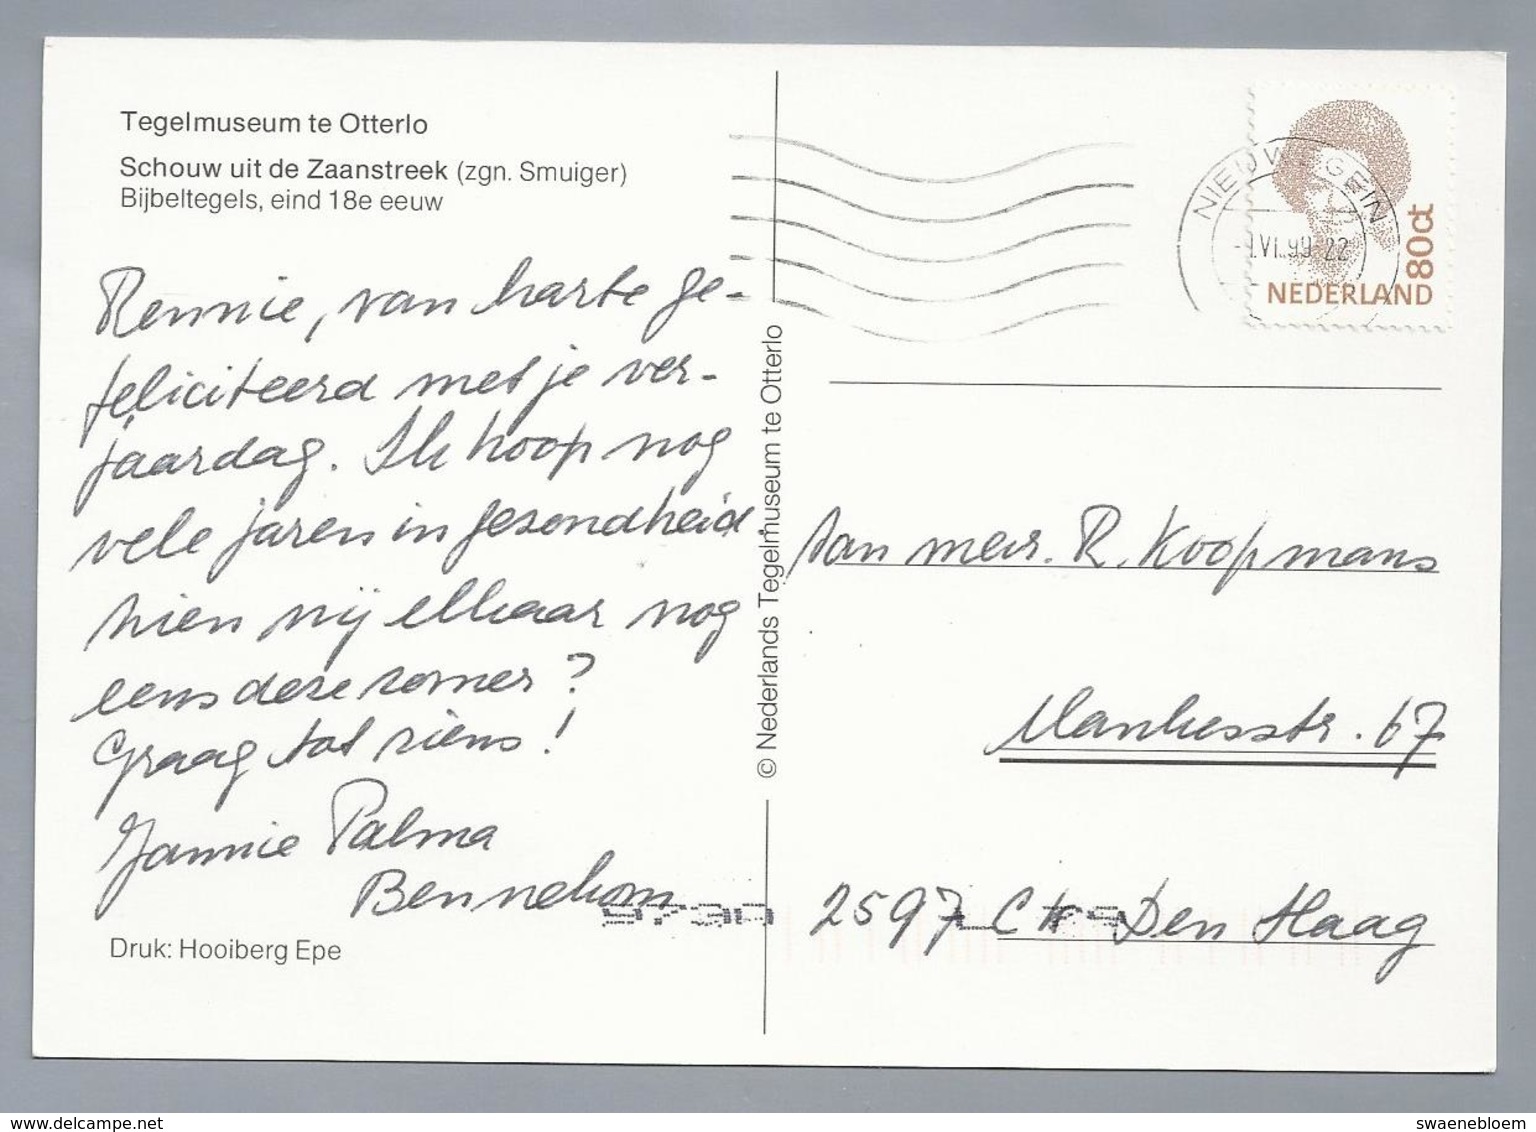 Tegelmuseum te Otterlo
Schouw uit de Zaanstreek (zgn. Smuiger)
Bijbeltegels, eind 18e eeuw
Rennie, van harte ge-
feliciteerd met je ver-
jaardag. Ik hoop nog
vele jaren in gezondheid.
Zien wij elkaar nog
eens deze zomer?
Graag tot ziens!
Jannie Palma
Bennekom
Druk: Hooiberg Epe
© Nederlands Tegelmuseum te Otterlo
NIEUWEGEIN
VI.99 22
80ct
NEDERLAND
Aan mevr. R. Koopmans
Mankesstr. 67
2597 CK Den Haag
www.delcampe.net
swaenebloem